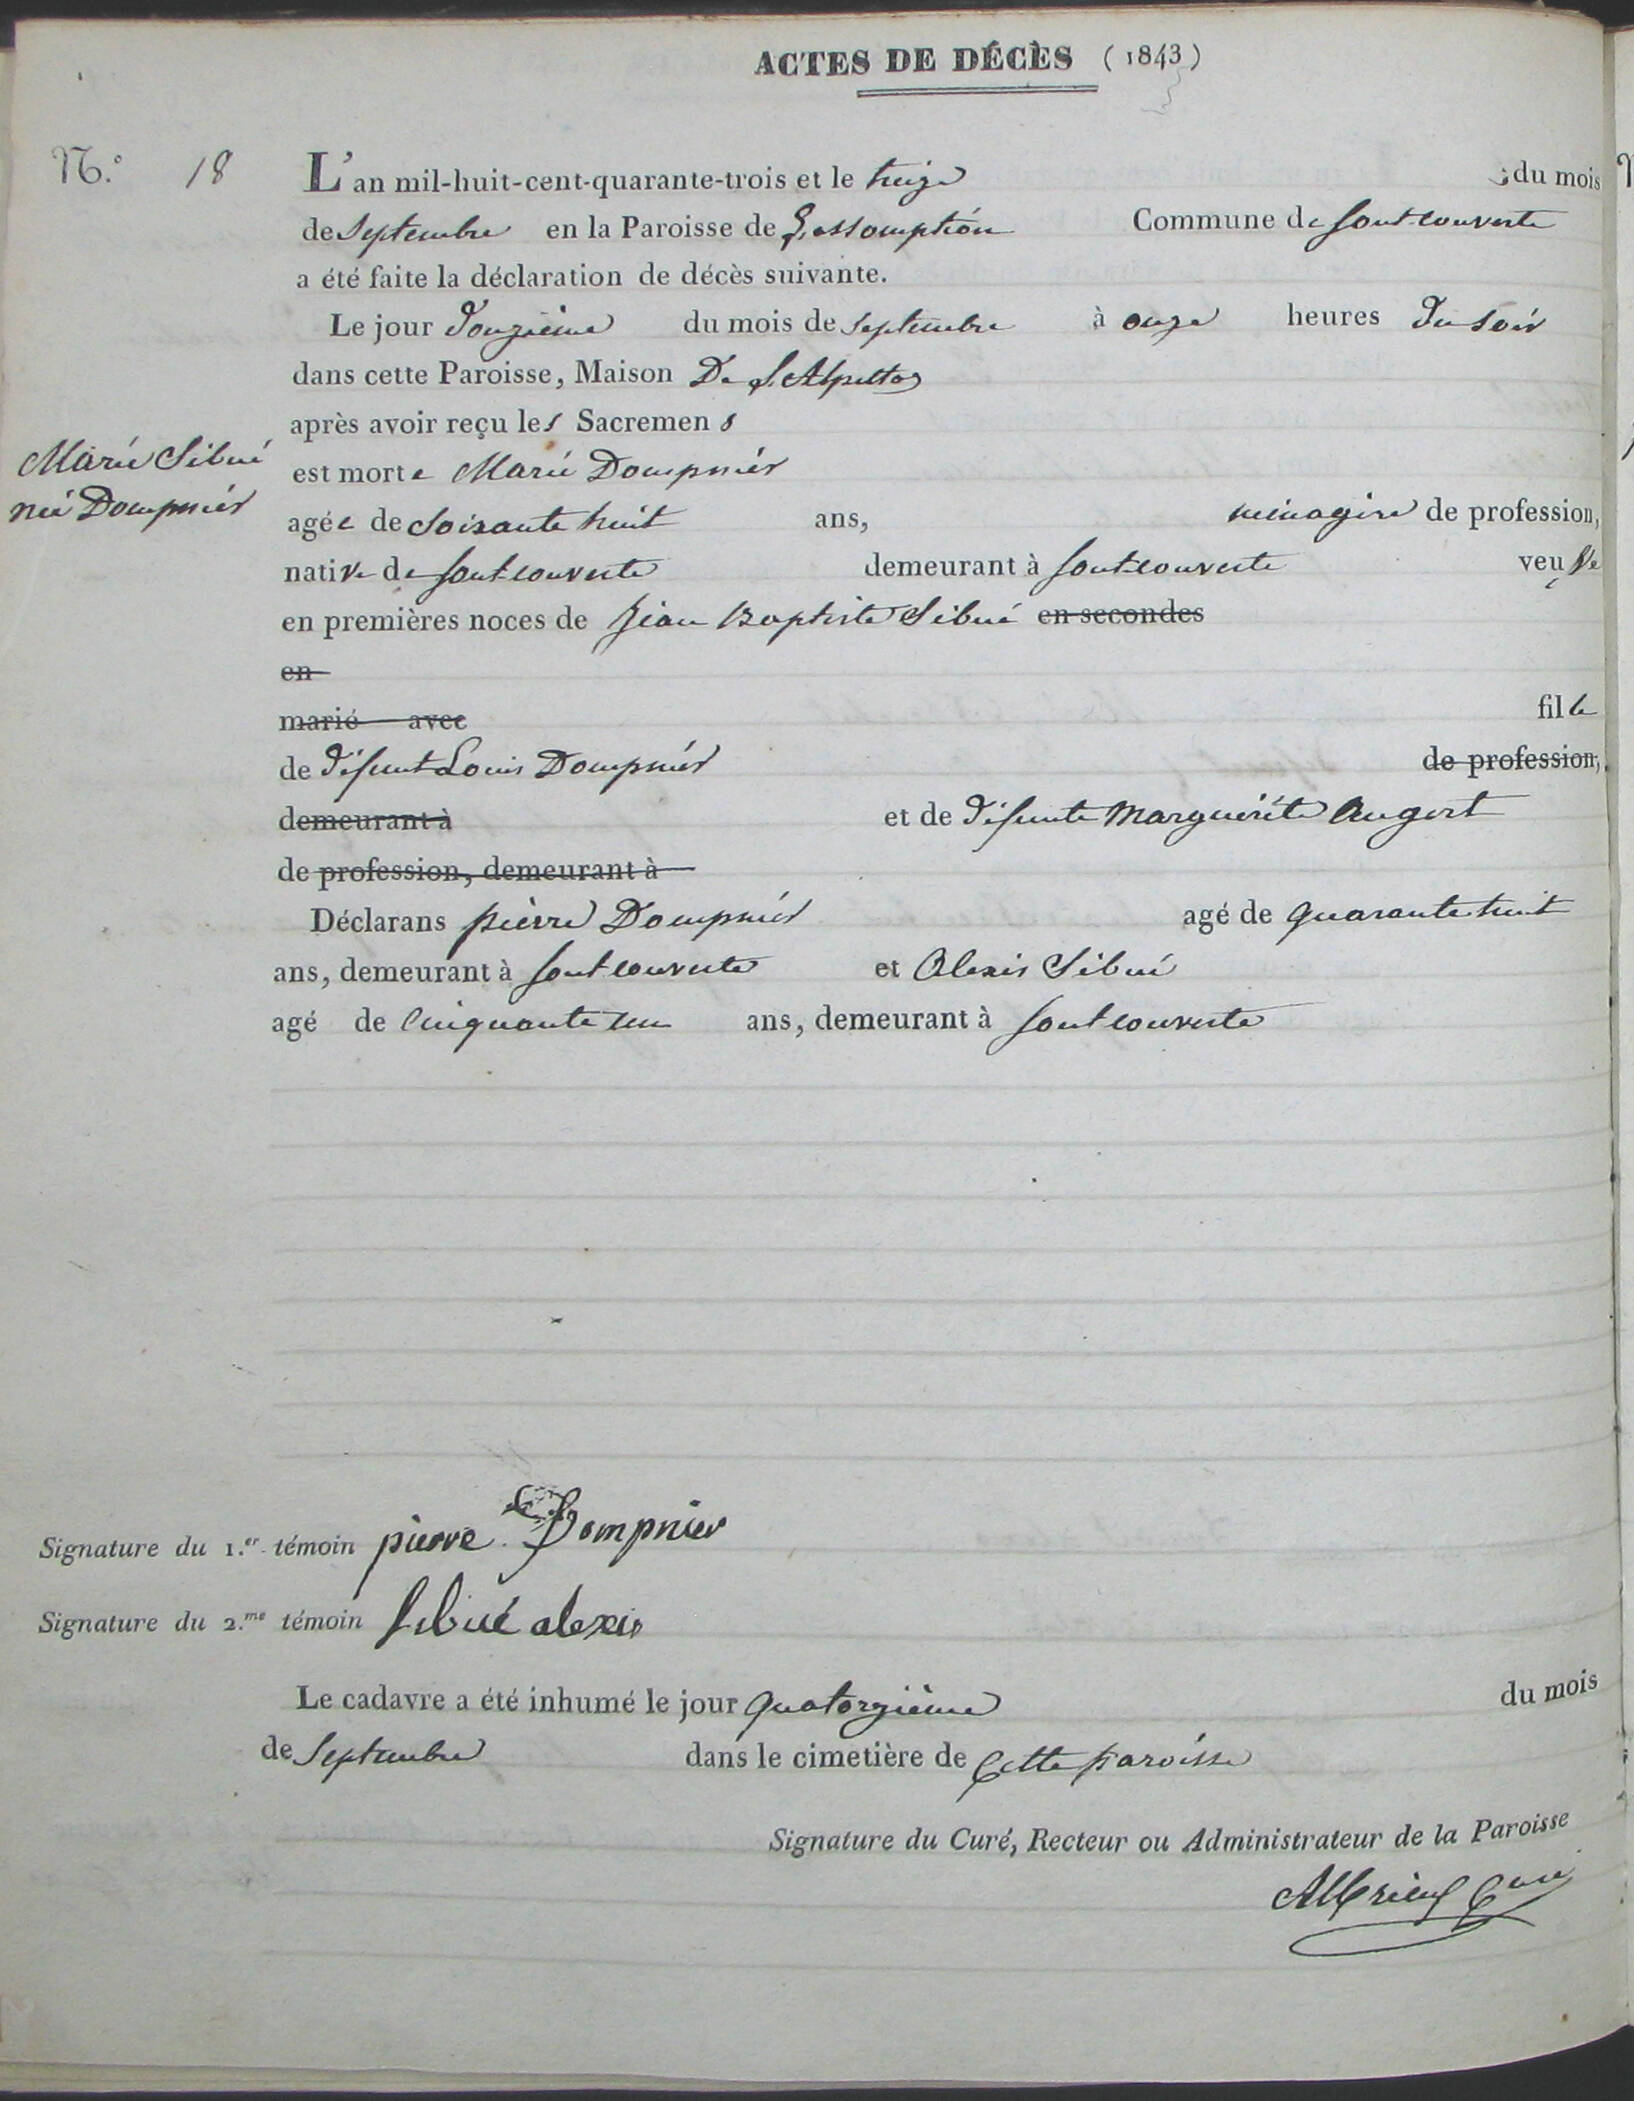 ACTES DE DÉCÈS (1843)
N.º 18
L'an mil-huit-cent-quarante-trois et le treize du mois
de Septembre en la Paroisse de L'assomption Commune de font-couverte
a été faite la déclaration de décès suivante.
Le jour Douzième du mois de Septembre à onze heures Du Soir
dans cette Paroisse, Maison De
après avoir reçu les Sacremens
Marie Sibué
née Dompnier
est morte Marie Dompnier
agée de Soixante huit ans, ménagère de profession,
native de font-couverte demeurant à font-couverte veuve
en premières noces de Jean Baptiste Sibué en secondes
en
marié avec fille
de Défunt Louis Dompnier de profession,
demeurant à et de Défunte Marguérite Augert
de profession, demeurant à
Déclarans pierre Dompnier agé de quarante huit
ans, demeurant à font couverte et Alexis Sibué
agé de Cinquante un ans, demeurant à font couverte
Signature du 1.er témoin pierre Dompnier
Signature du 2.me témoin Sibué alexis
Le cadavre a été inhumé le jour quatorzième du mois
de Septembre dans le cimetière de Cette paroisse
Signature du Curé, Recteur ou Administrateur de la Paroisse
Curé